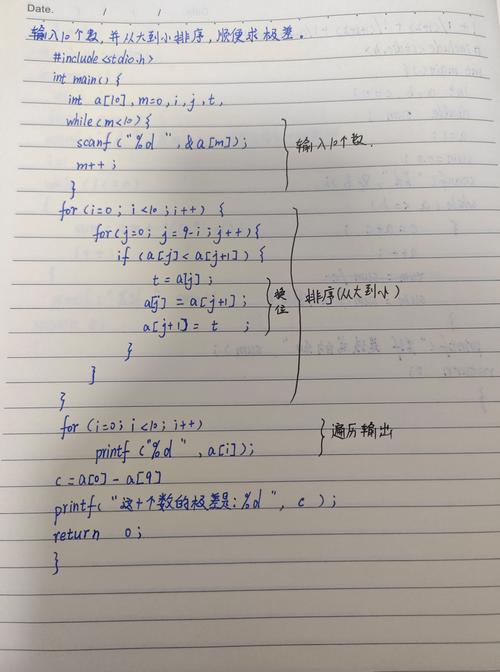 Date. / / /
输入10个数,并从大到小排序,顺便求极差。
#include<stdio.h>
int main() {
int a[10], m=0, i, j, t,
while(m<10){
scanf ("%d ", &a[m]);
m++ ;
}
输入10个数.
for(i=0; i<10; i++) {
for(j=0; j=9-i; j++){
if (a[j]<a[j+1]) {
t=a[j] ;
a[j] = a[j+1];
a[j+1]= t ;
换位
}
}
}
排序(从大到小)
for (i=0; i<10; i++)
printf ("%d ", a[i]);
遍历输出
c=a[0]-a[9]
printf( "这十个数的极差是:%d ", c );
return 0;
}